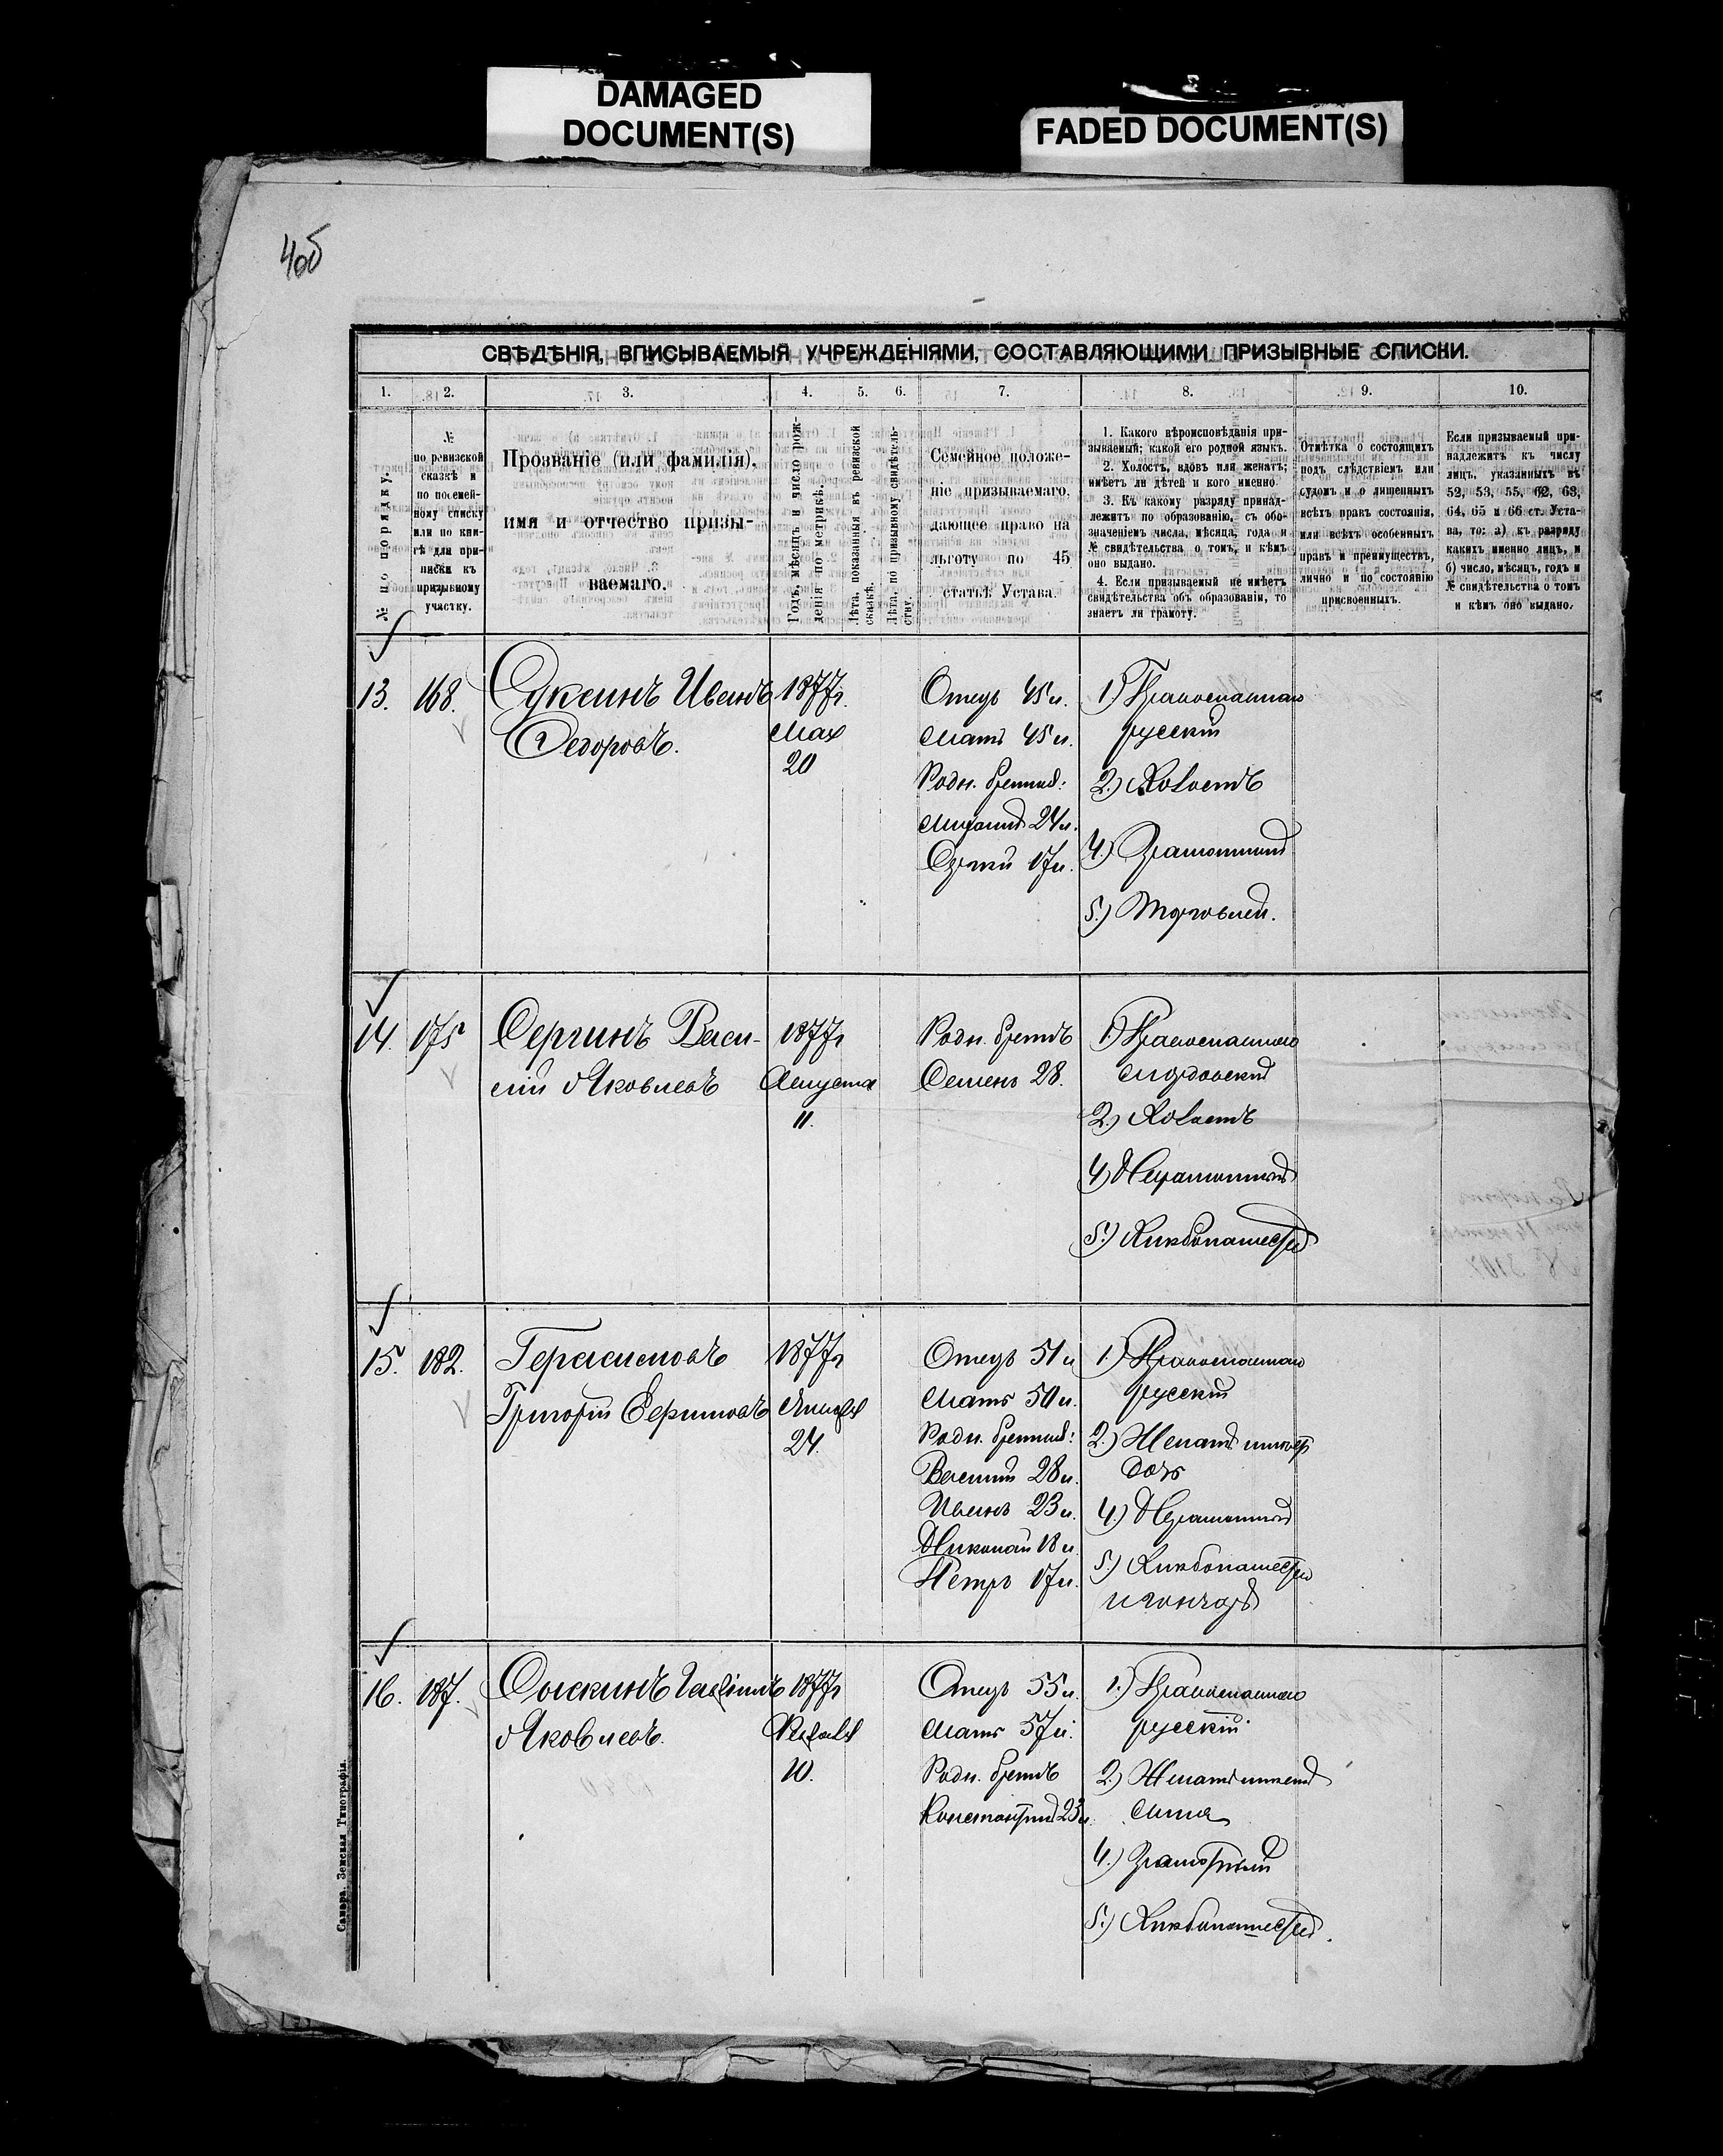 DAMAGED
DOCUMENT(S)
FADED DOCUMENT(S)
4об
СВѢДѢНІЯ, ВПИСЫВАЕМЫЯ УЧРЕЖДЕНІЯМИ, СОСТАВЛЯЮЩИМИ ПРИЗЫВНЫЕ СПИСКИ.
1. 2. 3. 4. 5. 6. 7. 8. 9. 10.
№ по порядку.
№
по ревизской
сказкѣ и
по посемей-
ному списку
или по кни-
гѣ для при-
писки къ
призывному
участку.
Прозваніе (или фамилія),
имя и отчество призы-
ваемаго.
Годъ, мѣсяцъ и число рож-
денія по метрикѣ.
Лѣта, показанныя въ ревизской
сказкѣ.
Лѣта, по призывному свидѣтель-
ству.
Семейное положе-
ніе призываемаго,
дающее право на
льготу по 45
статьѣ Устава.
1. Какого вѣроисповѣданія при-
зываемый; какой его родной языкъ.
2. Холостъ, вдовъ или женатъ;
имѣетъ ли дѣтей и кого именно
3. Къ какому разряду принад-
лежитъ по образованію, съ обо-
значеніемъ числа, мѣсяца, года и
№ свидѣтельства о томъ, и кѣмъ
оно выдано.
4. Если призываемый не имѣетъ
свидѣтельства объ образованіи, то
знаетъ ли грамоту.
Отмѣтка о состоящихъ
подъ слѣдствіемъ или
судомъ и о лишенныхъ
всѣхъ правъ состоянія,
или всѣхъ особенныхъ
правъ и преимуществъ,
лично и по состоянію
присвоенныхъ.
Если призываемый при-
надлежитъ къ числу
лицъ, указанныхъ въ
52, 53, 55, 62, 63,
64, 65 и 66 ст. Уста-
ва, то: а) къ разряду
какихъ именно лицъ, и
б) число, мѣсяцъ, годъ и
№ свидѣтельства о томъ
и кѣмъ оно выдано.
13. 168. Иванъ
Федоровъ.
1877г.
Мая
20
Отецъ 45 л.
Мать 45 л.
Родн. братья:
24 л.
Сергѣй 17 л.
1) Православнаго
русскій
2) Холостъ
4.) Грамотный
5.) Торговлей.
14. 175 Сергинъ Васи-
лій Яковлевъ
1877г
Августа
11.
Родн. братъ
Семенъ 28.
1) Православнаго
мордовскій
2.) Холостъ
4) Неграмотный
5.) Хлѣбопашествомъ
15. 182. Герасимовъ
Григорій Ефимовъ
1877г
Января
24.
Отецъ 51 л
Мать 50 л.
Родн. братья:
Василій 28 л.
Иванъ 23 л.
Николай 18 л.
Петръ 17 л.
1.) Православнаго
русскій
2.) Женатъ имѣетъ
дочь
4.) Неграмотный
5.) Хлѣбопашество
и гончаръ
16. 187.
Яковлевъ.
1877г
10.
Отецъ 55 л.
Мать 57 л.
Родн. братъ
Константинъ 23 л.
1.) Православнаго
русскій.
2.) Женатъ имѣетъ
сына
4.) Грамотный
5.) Хлѣбопашество.
Самара. Земская Типографія.